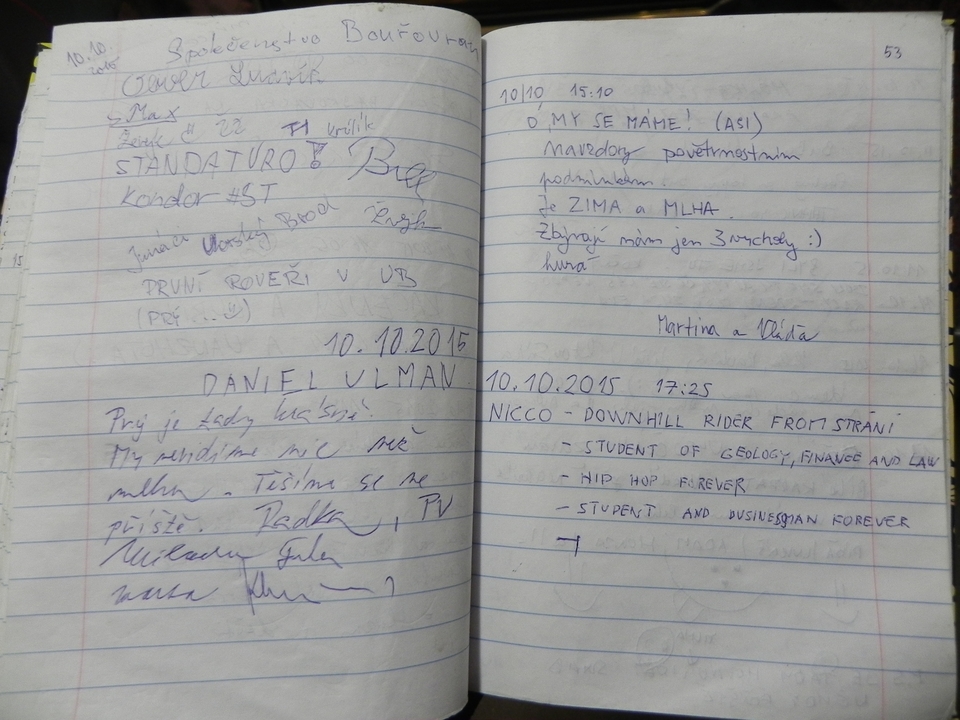 10.10.
2015
Společenstvo Bouřovran
Ludvík
Max
Ženk č 22 králík
STANDATURO!
Kondor #ST
Junáci Uherský Brod
PRVNÍ ROVEŘI V UB
(PRÝ ... :))
10.10.2015
DANIEL ULMAN
Prý je tady krásně.
My nevidíme nic než
mlhu. Těšíme se na
příště. Radka, PV
53
10/10 15:10
Ó, MY SE MÁME! (ASI)
navzdory povětrnostním
podmínkám.
Je ZIMA a MLHA.
Zbývají nám jen 3 vrcholy :)
hurá
Martina a Vláďa
10.10.2015 17:25
NICCO - DOWNHILL RIDER FROM STRÁNÍ
- STUDENT OF GEOLOGY, FINANCE AND LAW
- HIP HOP FOREVER
- STUDENT AND BUSINESSMAN FOREVER